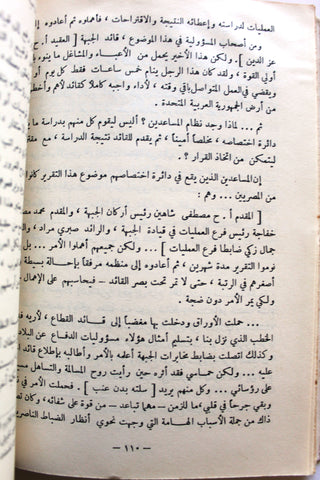 العمليات لدراسته وإعطائه النتيجة والاقتراحات ، فأهملوه ثم أعادوه إلى
ومن أصحاب المسؤولية في هذا الموضوع ، قائد الجبهة [ العقيد أ. ح
عز الدين ] . ولكن هذا الأخير يحمل من الأعباء والمشاغل ما ينوء
أولي القوة ، ولقد كان هذا الرجل ينام خمس ساعات فقط كل يوم أو
ويقضي في العمل المتواصل باقي وقته ، لأداء واجبه كاملاً كقائد لأهم
من أرض الجمهورية العربية المتحدة .
ثم ... لماذا وجد نظام المساعدين ؟ أليس ليقوم كل منهم بدراسة ما
دائرة اختصاصه ، مخلصاً أميناً ، ثم يقدم للقائد نتيجة الدراسة ، مع
ليتمكن من اتخاذ القرار ؟
إن المساعدين الذين يقع في دائرة اختصاصهم موضوع هذا التقرير كانوا
من المصريين ... وهم :
[ المقدم أ. ح مصطفى شاهين رئيس أركان الجبهة ، والمقدم محمد
خفاجة فرع العمليات في قيادة الجبهة ، والرائد صبري مراد ،
جمال زكي ضابطا فرع العمليات ] ... ولكن جميعهم أهملوا الأمر ...
نوموا التقرير مدة شهرين ، ثم أعادوه إلى منظمه مرفقاً بإحالة بسيطة
أصغرهم في الرتبة ، حتى لا تمر تحت بصر القائد – فيحاسبهم على الإهمال
ولكي يمر الأمر دون ضجة .
... حملت الأوراق ودخلت بها مغضباً إلى قائد القطاع ، لأريه
الخطب الذي نزل بنا ، بتسليم أمثال هؤلاء مسؤوليات الدفاع عن
وكذلك اتصلت بضابط مخابرات الجبهة أعلمه بالأمر وأطالبه بإطلاع
... ولكن حماسي فقد أثره حين رأيت روح المسالمة والتساهل
على رؤسائي ... وكل منهم يريد [ سلته بدون عنب ] . فحملت الأمر في
وبقي جرحاً في قلبي ، ما للزمن – مهما تباعد – من قوة على شفائه ، وكان
ذاك من جملة الأسباب الهامة التي وجهت نحوي أنظار الضباط
— ١١٠ —